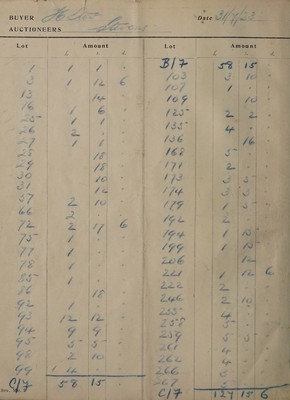 BUYER
Date 31/7/23
AUCTIONEERS Stevens
Lot Amount
£
1 1 1 -
3 1 12 6
13 14 -
16 1 6
25 1 1 -
26 2 -
27 1 1
28 18
29 18
30 10
31 12
57 2 10
66 2
72 2 17 6
75 1
77 1
78 1
85 1
86 18
92 1
93 12 12
94 9 9
95 5 5
98 2 10
99 4
C/7 58 15
Lot Amount
£
B/7 58 15 -
103 3 10
107 1
109 10
125 2 2
135 4 -
136 16
168 5
171 2
173 3 3
174 3 3
179 1 5
192 2
194 1
199 1
206 12
221 1 12 6
222 2
246 2 10
255 4
258 5
259 5
261 4
262 4
266
267
C/7 127 15 6